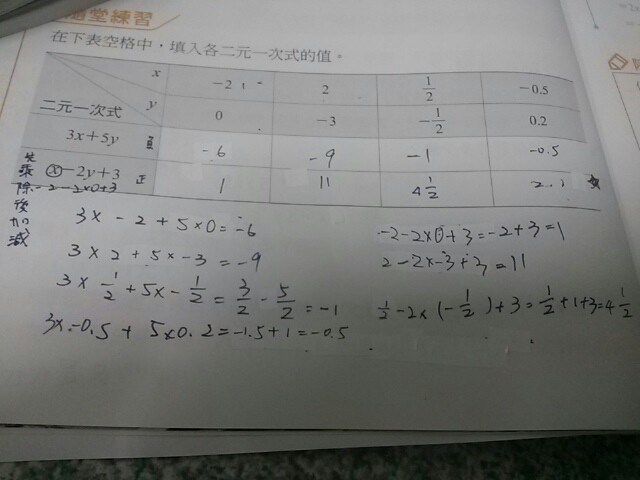 隨堂練習
在下表空格中，填入各二元一次式的值。
x -2 2 1/2 -0.5
二元一次式 y 0 -3 -1/2 0.2
3x+5y 負 -6 -9 -1 -0.5
x-2y+3 正 1 11 4 1/2 2.1
-2-2×0+3
先乘除後加減
3×-2+5×0=-6
-2-2×0+3=-2+3=1
3×2+5×-3=-9
2-2×-3+3=11
3×1/2+5×-1/2=3/2-5/2=-1
1/2-2×(-1/2)+3=1/2+1+3=4 1/2
3×-0.5+5×0.2=-1.5+1=-0.5